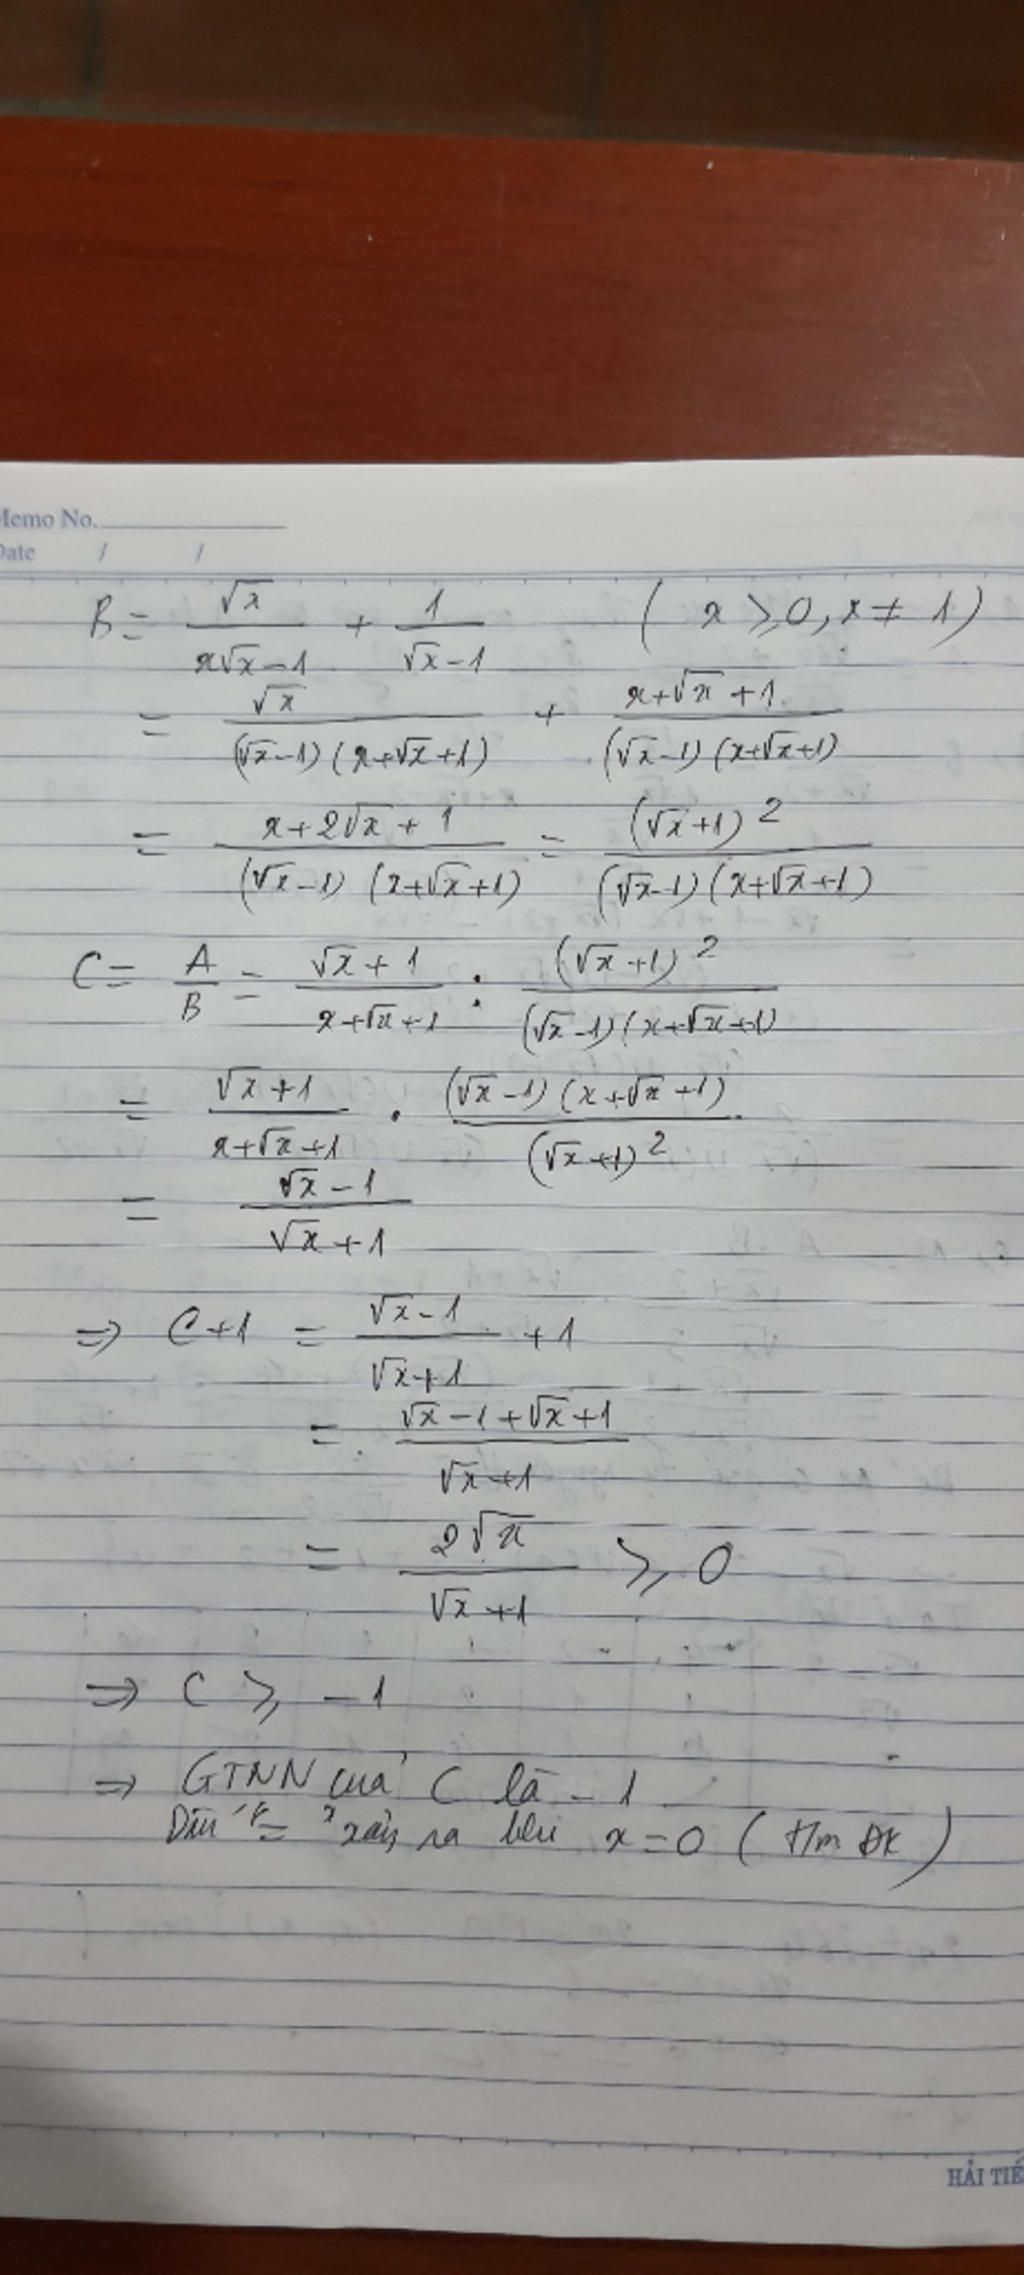 Memo No.
Date / /
B = √x/(x√x-1) + 1/(√x-1) ( x ≥ 0, x ≠ 1 )
= √x/((√x-1)(x+√x+1)) + (x+√x+1)/((√x-1)(x+√x+1))
= (x+2√x+1)/((√x-1)(x+√x+1)) = (√x+1)²/((√x-1)(x+√x+1))
C = A/B = (√x+1)/(x+√x+1) : (√x+1)²/((√x-1)(x+√x+1))
= (√x+1)/(x+√x+1) . ((√x-1)(x+√x+1))/(√x+1)²
= (√x-1)/(√x+1)
=> C+1 = (√x-1)/(√x+1) + 1
= (√x-1+√x+1)/(√x+1)
= 2√x/(√x+1) ≥ 0
=> C ≥ -1
=> GTNN của C là -1
Dấu "=" xảy ra khi x=0 ( t/m ĐK )
HẢI TIẾ